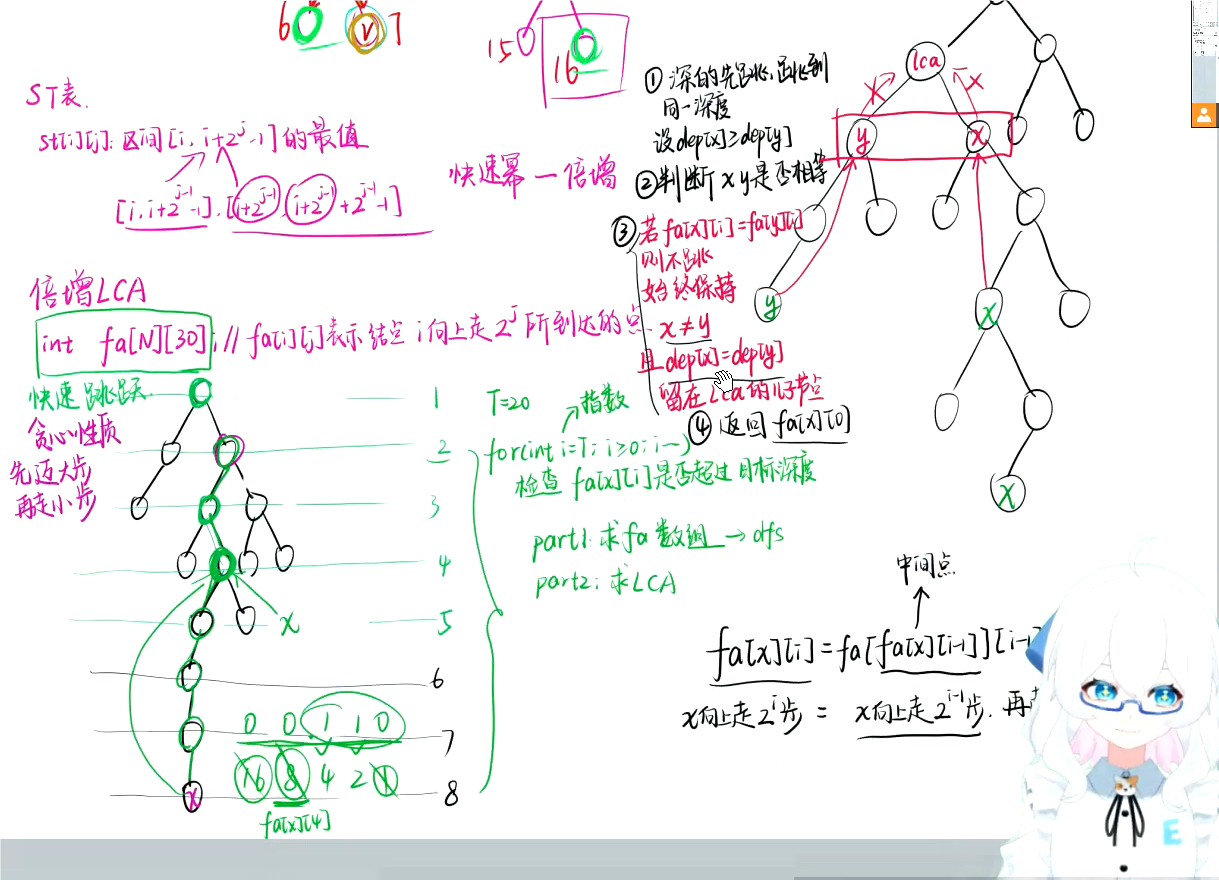 6
v
7
15
16
ST表.
st[i][j]: 区间[i, i+2^j-1]的最值
[i, i+2^{j-1}-1], [i+2^{j-1}, i+2^{j-1}+2^{j-1}-1]
快速幂—倍增
倍增LCA
int fa[N][30]; // fa[i][j]表示结点 i向上走2^j所到达的点.
快速跳跃.
贪心性质
先迈大步
再走小步
1
2
3
4
5
6
7
8
x
0 0 1 1 0
16 8 4 2 1
x
fa[x][4]
T=20
指数
for(int i=T; i≥0; i--)
检查 fa[x][i]是否超过目标深度
part1: 求fa数组 → dfs
part2: 求LCA
① 深的先跳,跳到
同一深度
设dep[x]≥dep[y]
②判断 x y是否相等
③ 若 fa[x][i]=fa[y][i]
则不跳
始终保持
x≠y
且 dep[x]=dep[y]
留在Lca的儿子节点
④ 返回 fa[x][0]
lca
y
x
y
x
x
中间点
fa[x][i]=fa[fa[x][i-1]][i-1
x向上走2^i步 = x向上走2^{i-1}步. 再
E